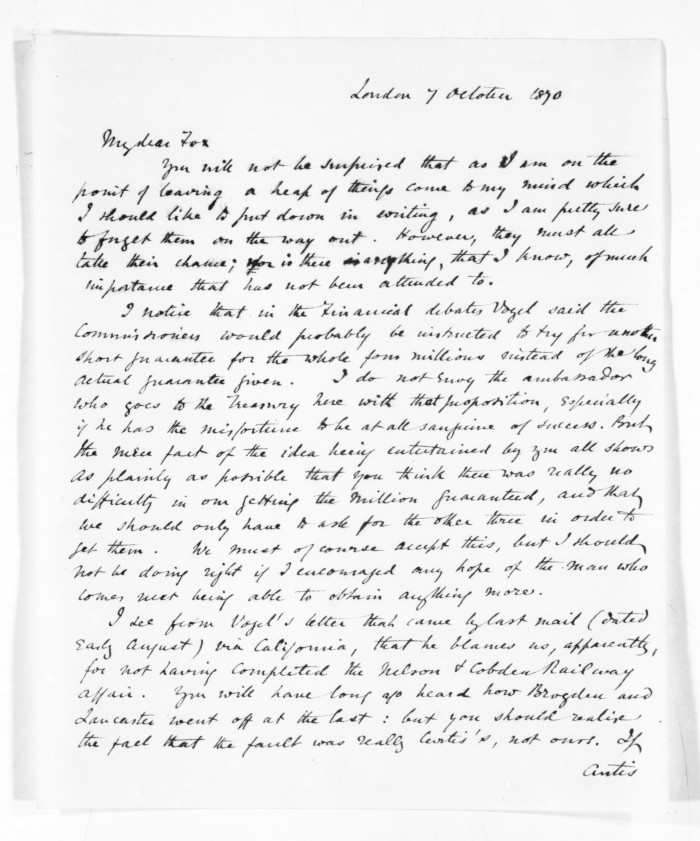 London 7 October 1870
My dear Fox
You will not be surprised that as I am on the
point of leaving a heap of things come to my mind which
I should like to put down in writing, as I am pretty sure
to forget them on the way out. However, they must all
take their chance; nor is there anything, that I know, of much
importance that has not been attended to.
I notice that in the Financial debates Vogel said the
Commissioners would probably be instructed to try for another
short guarantee for the whole four millions instead of the long
actual guarantee given. I do not envy the ambassador
who goes to the Treasury here with that proposition, especially
if he has the misfortune to be at all sanguine of success. But
the mere fact of the idea being entertained by you all shows
as plainly as possible that you think there was really no
difficulty in our getting the Million guaranteed, and that
we should only have to ask for the other three in order to
get them. We must of course accept this, but I should
not be doing right if I encouraged any hope of the man who
comes next being able to obtain anything more.
I see from Vogel's letter that came by last mail (dated
early August) via California, that he blames us, apparently,
for not having completed the Nelson & Cobden Railway
affair. You will have long ago heard how Brogden and
Lancaster went off at the last: but you should realise
the fact that the fault was really Curtis's, not ours. If
Curtis